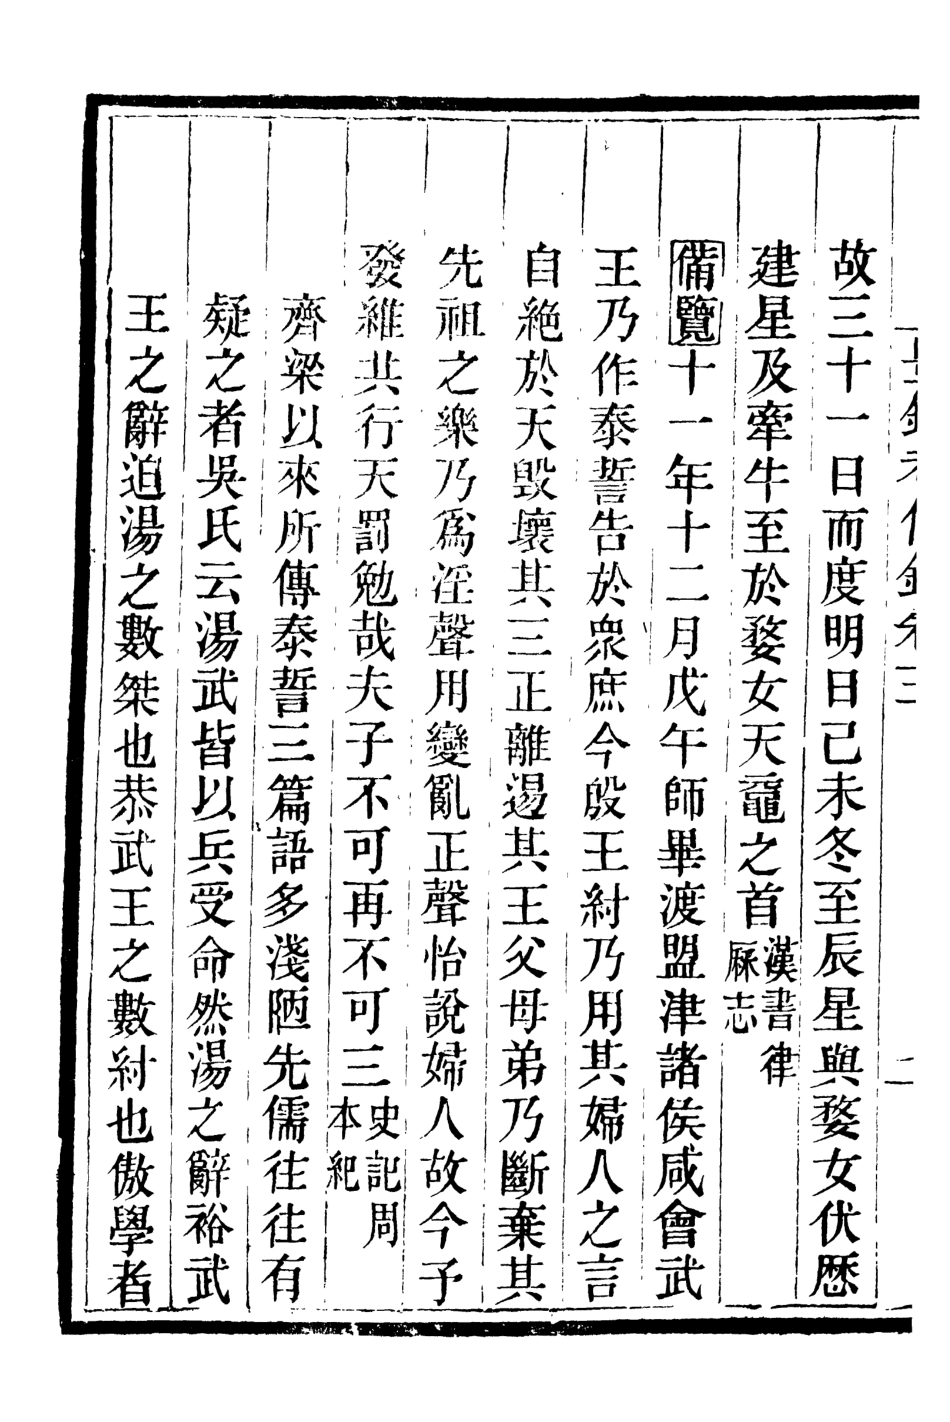 故三十一日而度明日己未冬至辰星與婺女伏歷
建星及牽牛至於婺女天黿之首漢書律厤志
備覽十一年十二月戊午師畢渡盟津諸侯咸會武
王乃作泰誓告於眾庶今殷王紂乃用其婦人之言
自絶於天毀壞其三正離逷其王父母弟乃斷棄其
先祖之樂乃爲淫聲用變亂正聲怡說婦人故今予
發維共行天罰勉哉夫子不可再不可三史記周本紀
齊梁以來所傳泰誓三篇語多淺陋先儒往往有
疑之者吳氏云湯武皆以兵受命然湯之辭裕武
王之辭迫湯之數桀也恭武王之數紂也傲學者